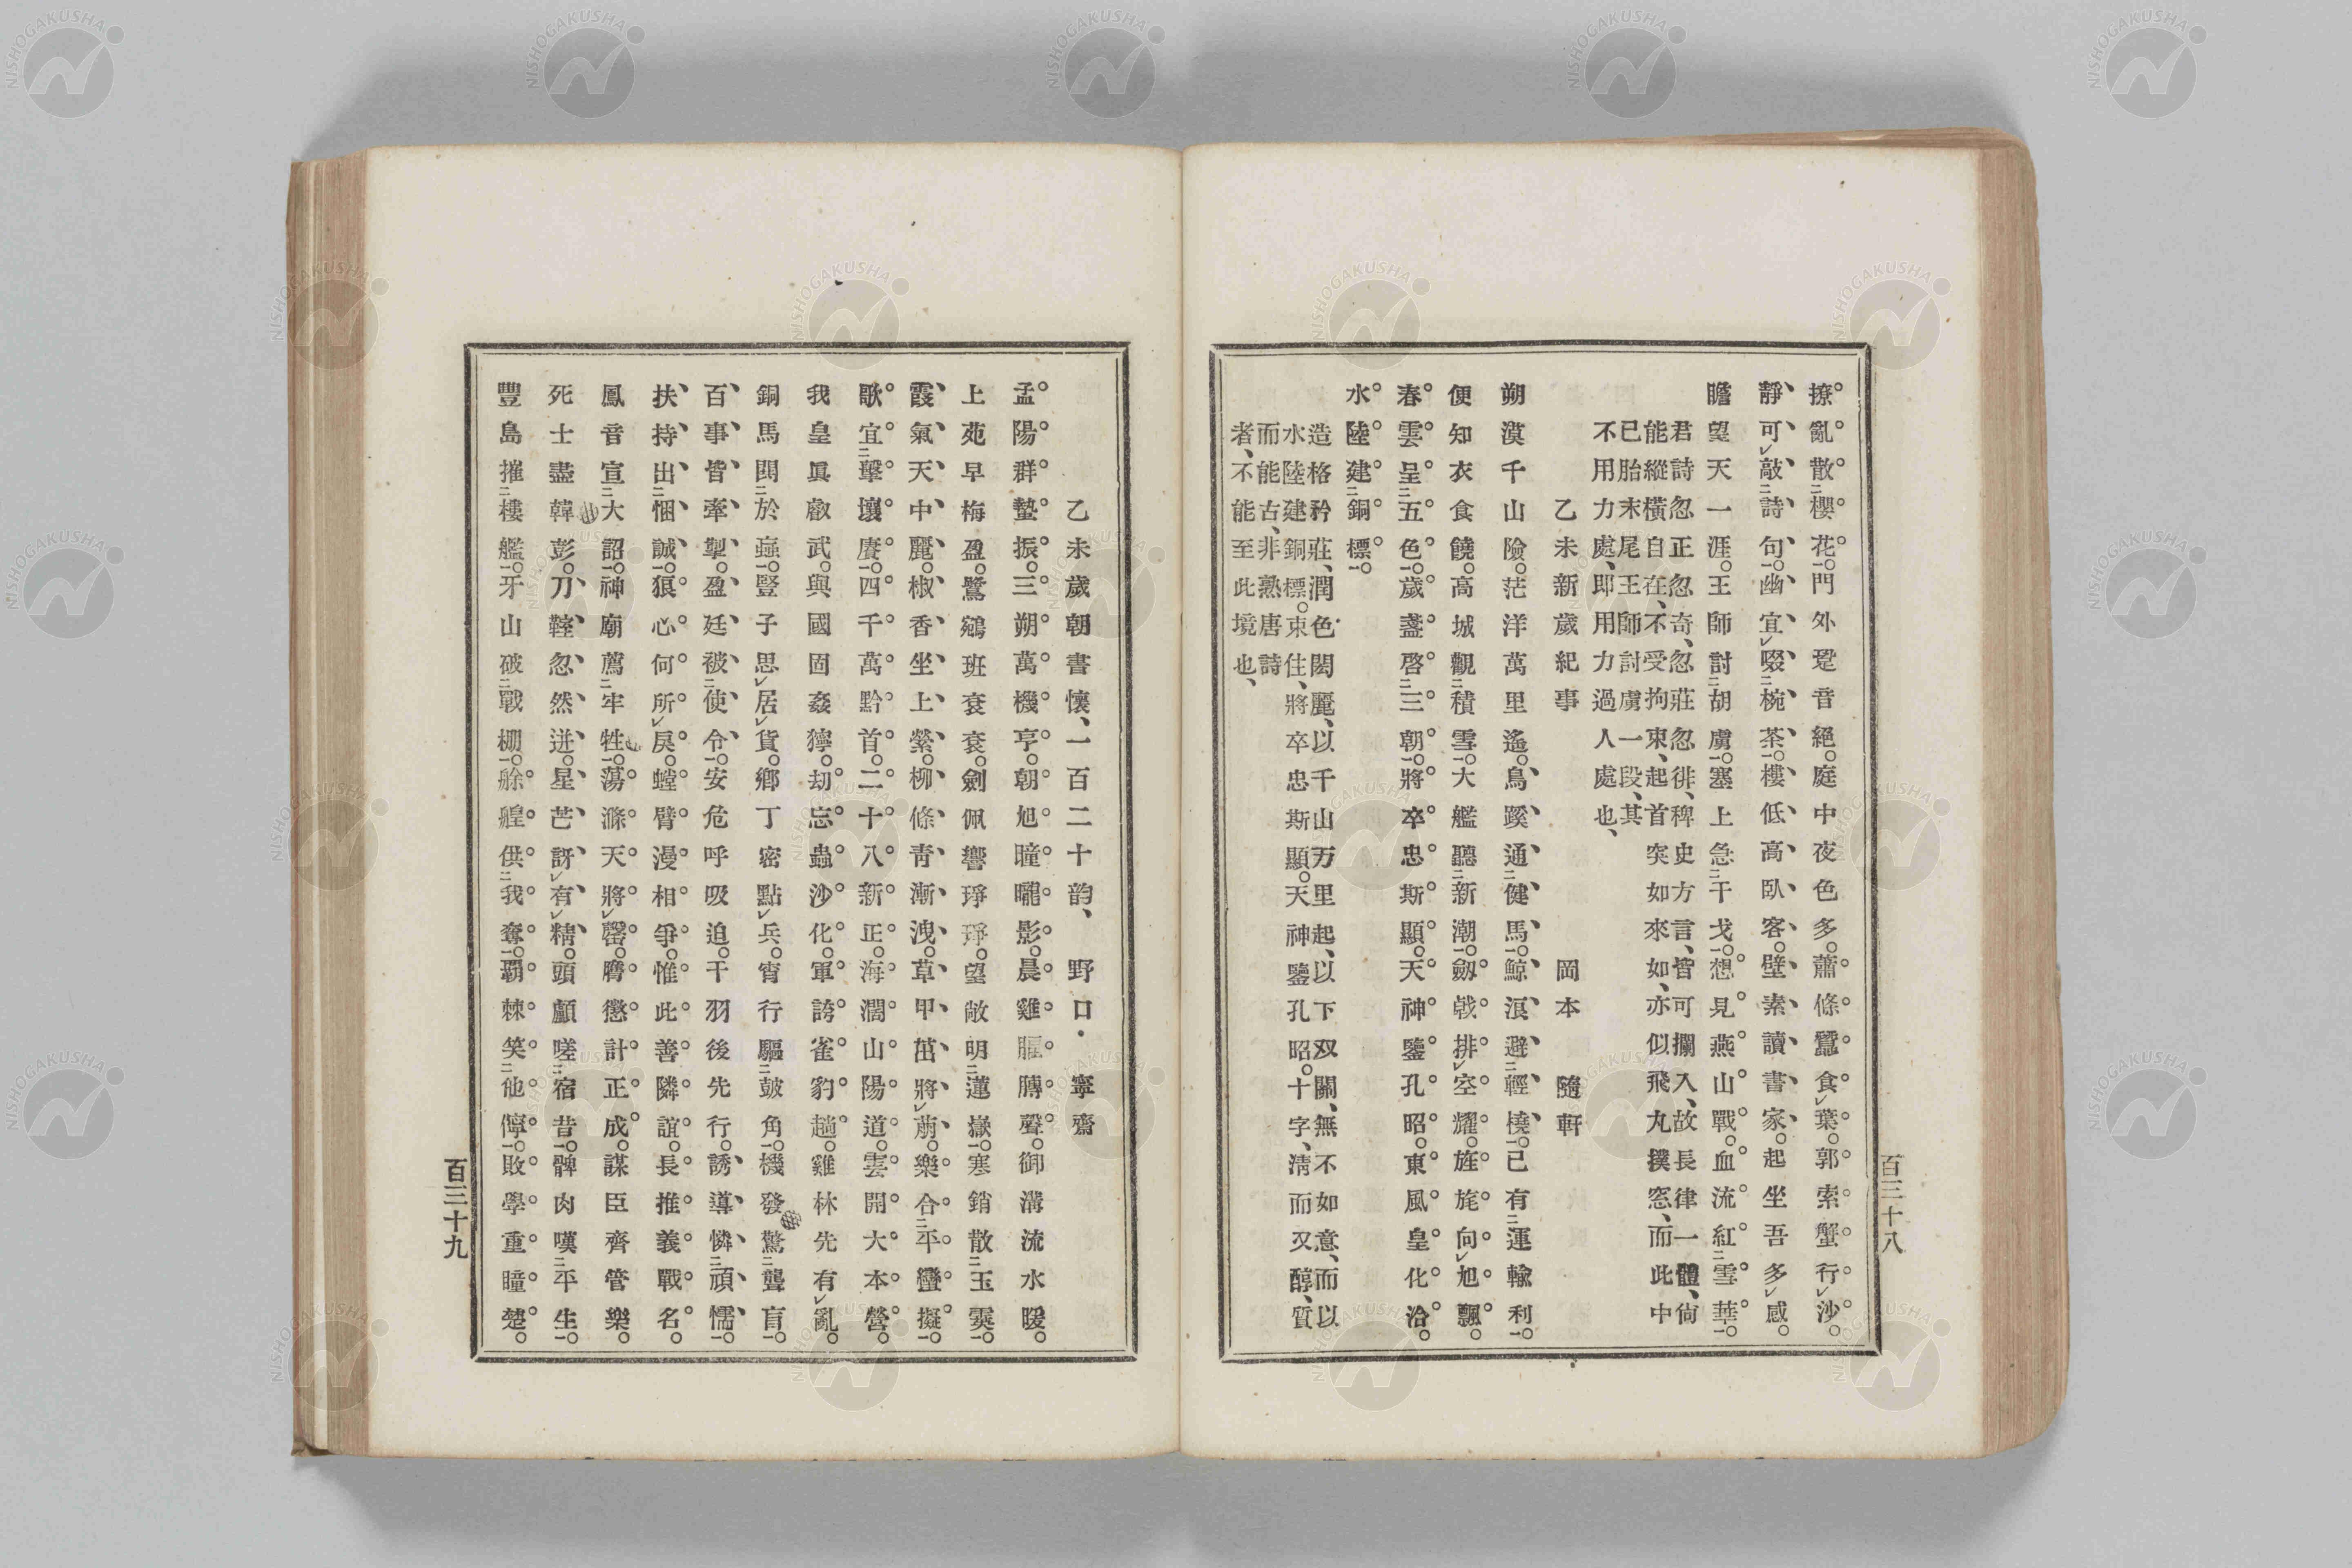 撩亂散櫻花。門外跫音絕。庭中夜色多。蕭條蠶食葉。郭索蟹行沙。
靜可敲詩句。幽宜啜椀茶。樓低高臥客。壁素讀書家。起坐吾多感。
瞻望天一涯。王師討胡虜。塞上急干戈。想見燕山戰。血流紅雪華。
君詩忽正忽奇、忽莊忽徘、稗史方言、皆可攔入、故長律一體、尙
能縱橫自在、不受拘束、起首突如來如、亦似飛丸撲窓、而此中
已胎末尾王師討虜一段、其
不用力處、即用力過人處也、
乙未新歲紀事 岡本 隨軒
朔漠千山險。茫洋萬里遙。鳥蹊通健馬。鯨浪避輕橈。已有運輸利。
便知衣食饒。高城觀積雪。大艦聽新潮。劔戟排空耀。旌旄向旭飄。
春雲呈五色。歲盞啓三朝。將卒忠斯顯。天神鑒孔昭。東風皇化洽。
水陸建銅標。
造格矜莊、潤色閎麗、以千山万里起、以下双關、無不如意、而以
水陸建銅標。束住、將卒忠斯顯。天神鑒孔昭。十字、淸而又醇、質
而能古、非熟唐詩
者、不能至此境也、
百三十八
乙未歲朝書懷、一百二十韵、 野口・寧齋
孟陽群蟄振。三朔萬機亨。朝旭曈曨影。晨雞腷膊聲。御溝流水暖。
上苑早梅盈。鷺鵷班袞袞。劍佩響琤琤。望敞明蓮嶽。塞銷散玉霙。
霞氣天中麗。椒香坐上縈。柳條靑漸洩。草甲茁將萠。樂合平蠻擬。
歌宜擊壤賡。四千萬黔首。二十八新正。海濶山陽道。雲開大本營。
我皇眞叡武。與國固姦獰。劫忘蟲沙化。軍誇雀豹趫。雞林先有亂。
銅馬閧於蝱。豎子思居貨。鄕丁密點兵。宵行驅鼓角。機發驚聾盲。
百事皆牽掣。盈廷被使令。安危呼吸迫。干羽後先行。誘導憐頑懦。
扶持出悃誠。狼心何所戾。螳臂漫相爭。惟此善隣誼。長推義戰名。
鳳音宣大詔。神廟薦牢牲。蕩滌天將罄。膺懲計正成。謀臣齊管樂。
死士盡韓彭。刀鞘忽然迸。星芒訝有精。頭顱嗟宿昔。髀肉嘆平生。
豐島摧樓艦。牙山破戰棚。艅艎供我奪。覇棘笑他儜。敗學重瞳楚。
百三十九